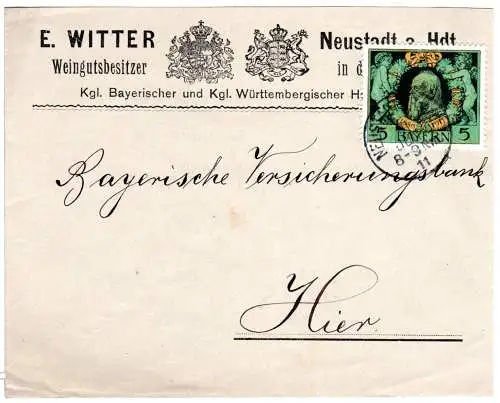 E. WITTER Neustadt a. Hdt.
Weingutsbesitzer in d
Kgl. Bayerischer und Kgl. Württembergischer H
5 BAYERN 5
8-9
11
Bayerische Versicherungsbank
Hier.